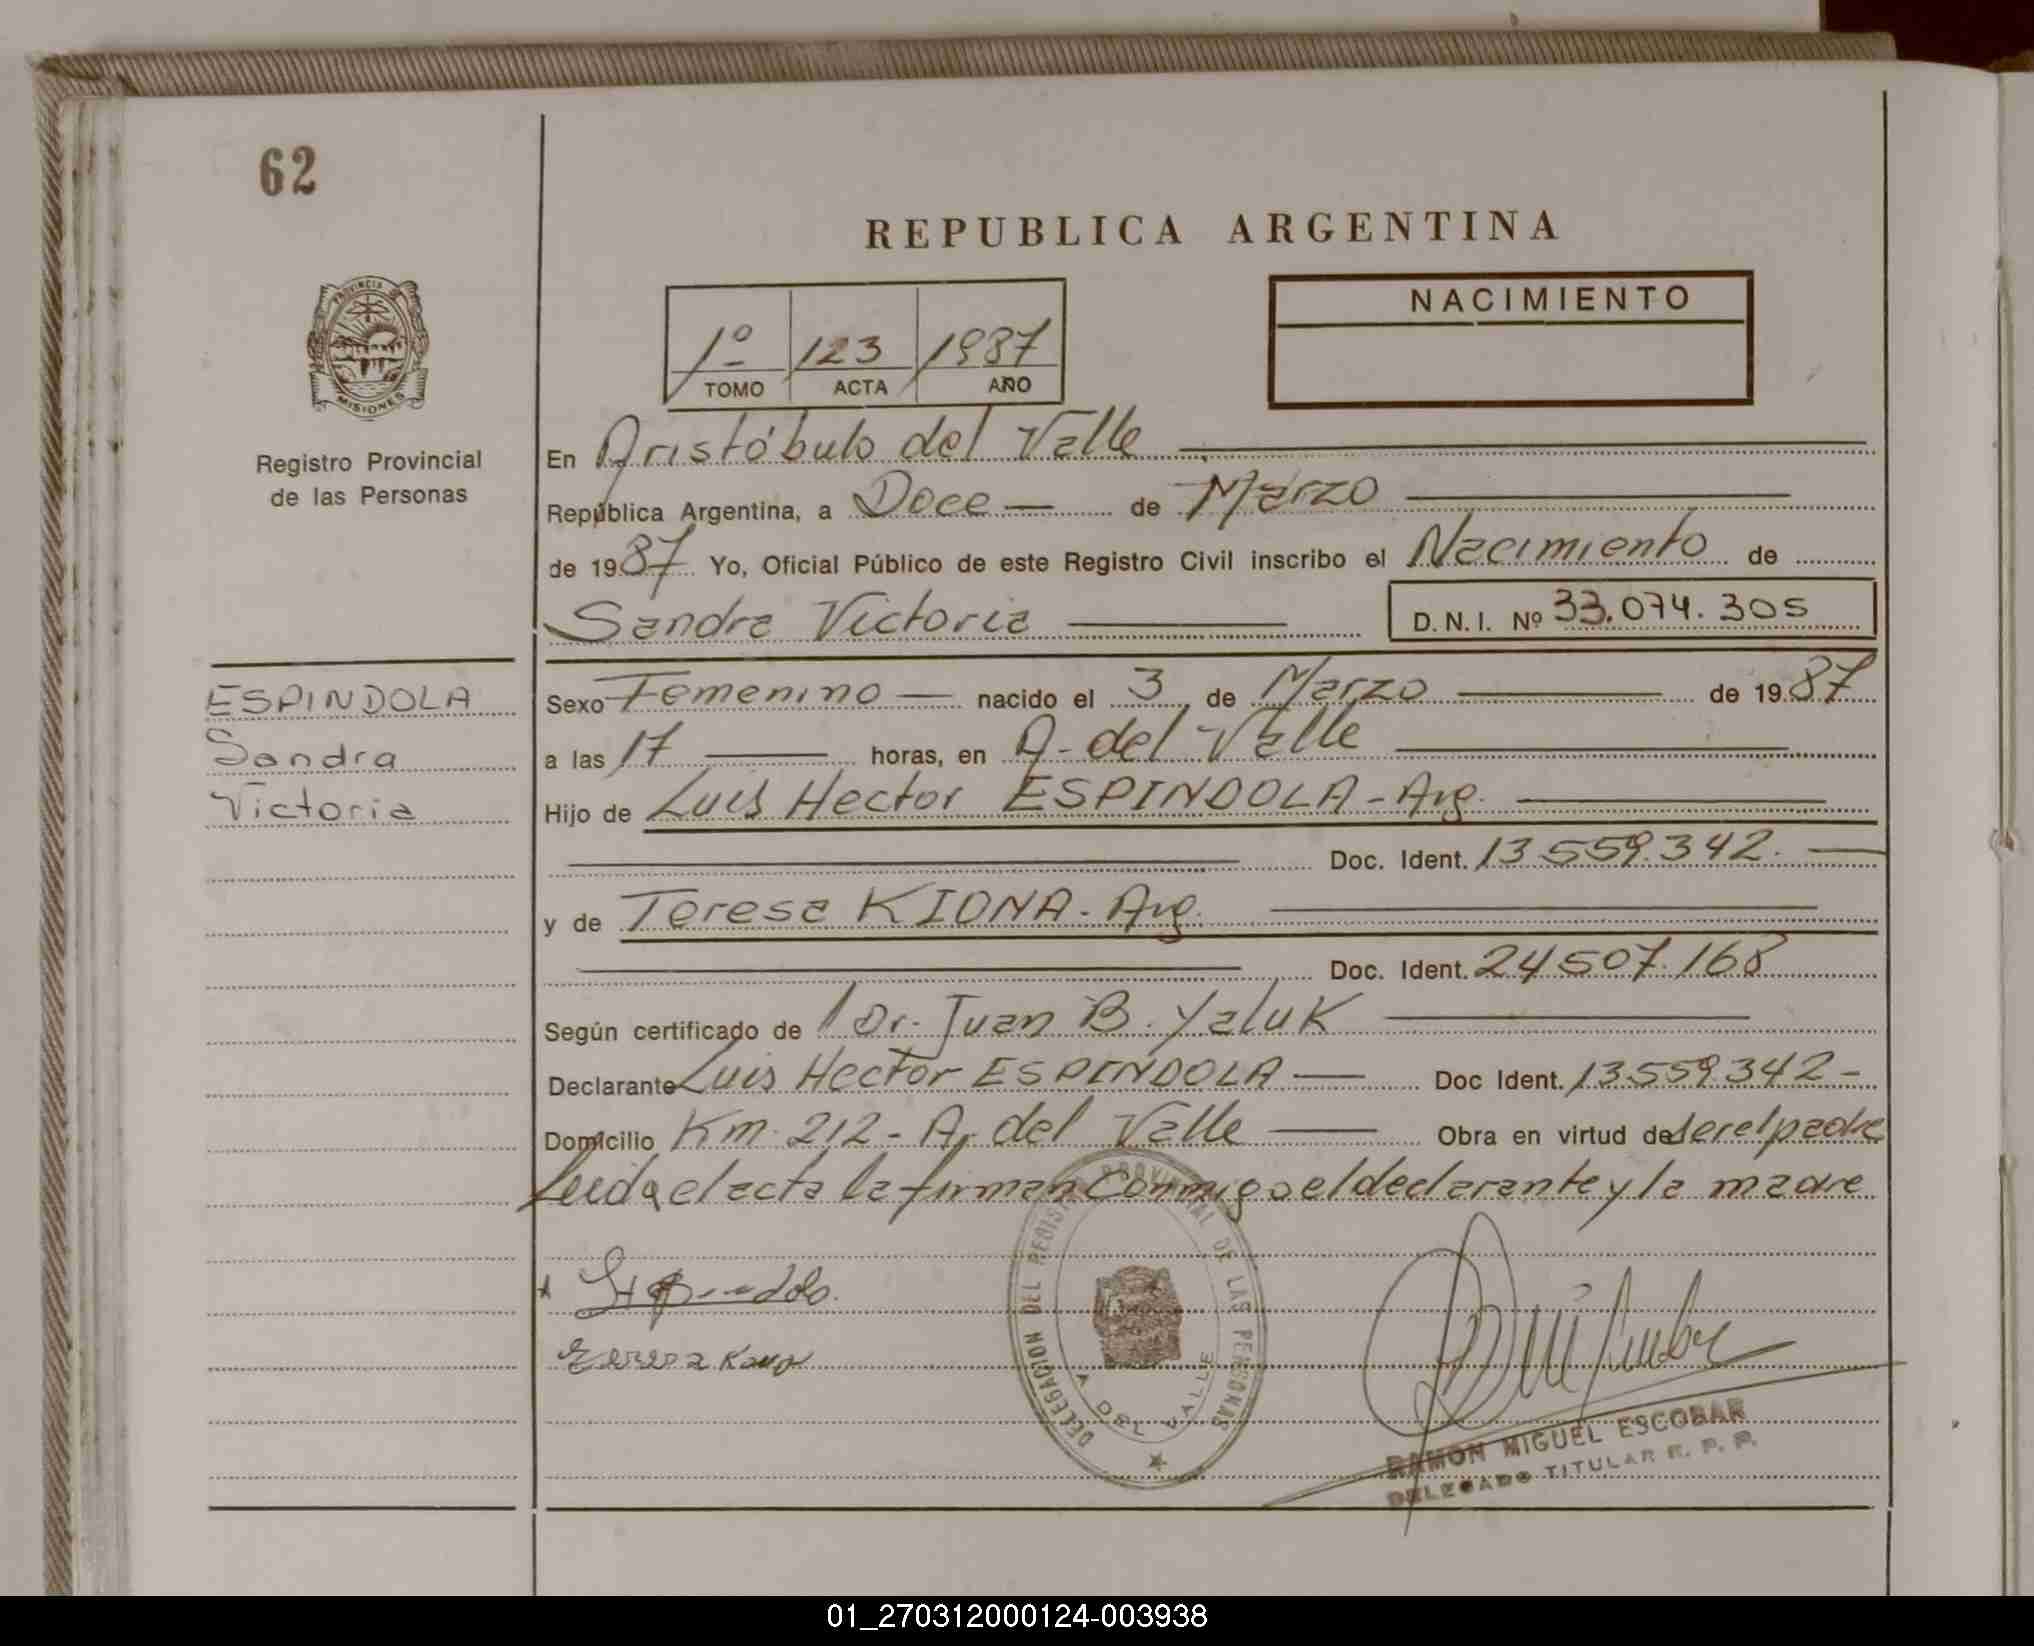 62
REPUBLICA ARGENTINA
PROVINCIA DE
MISIONES
Registro Provincial
de las Personas
1º 123 1987
TOMO ACTA AÑO
NACIMIENTO
En Aristóbulo del Valle
República Argentina, a Doce de Marzo
de 1987 Yo, Oficial Público de este Registro Civil inscribo el Nacimiento de
Sandra Victoria D.N.I. Nº 33.074.305
ESPINDOLA
Sandra
Victoria
Sexo Femenino nacido el 3 de Marzo de 1987
a las 17 horas, en A. del Valle
Hijo de Luis Hector ESPINDOLA - Arg.
Doc. Ident. 13.559.342.
y de Teresa KIONA - Arg.
Doc. Ident. 24.507.168
Según certificado de Dr. Juan B. Yaluk
Declarante Luis Hector ESPINDOLA Doc Ident. 13.559.342 -
Domicilio Km. 212 - A. del Valle Obra en virtud de ser el padre
Leida el acta la firman Conmigo el declarante y la madre
DELEGACION DEL REGISTRO PROVINCIAL DE LAS PERSONAS
A DEL VALLE
RAMON MIGUEL ESCOBAR
DELEGADO TITULAR R. P. P.
01_270312000124-003938